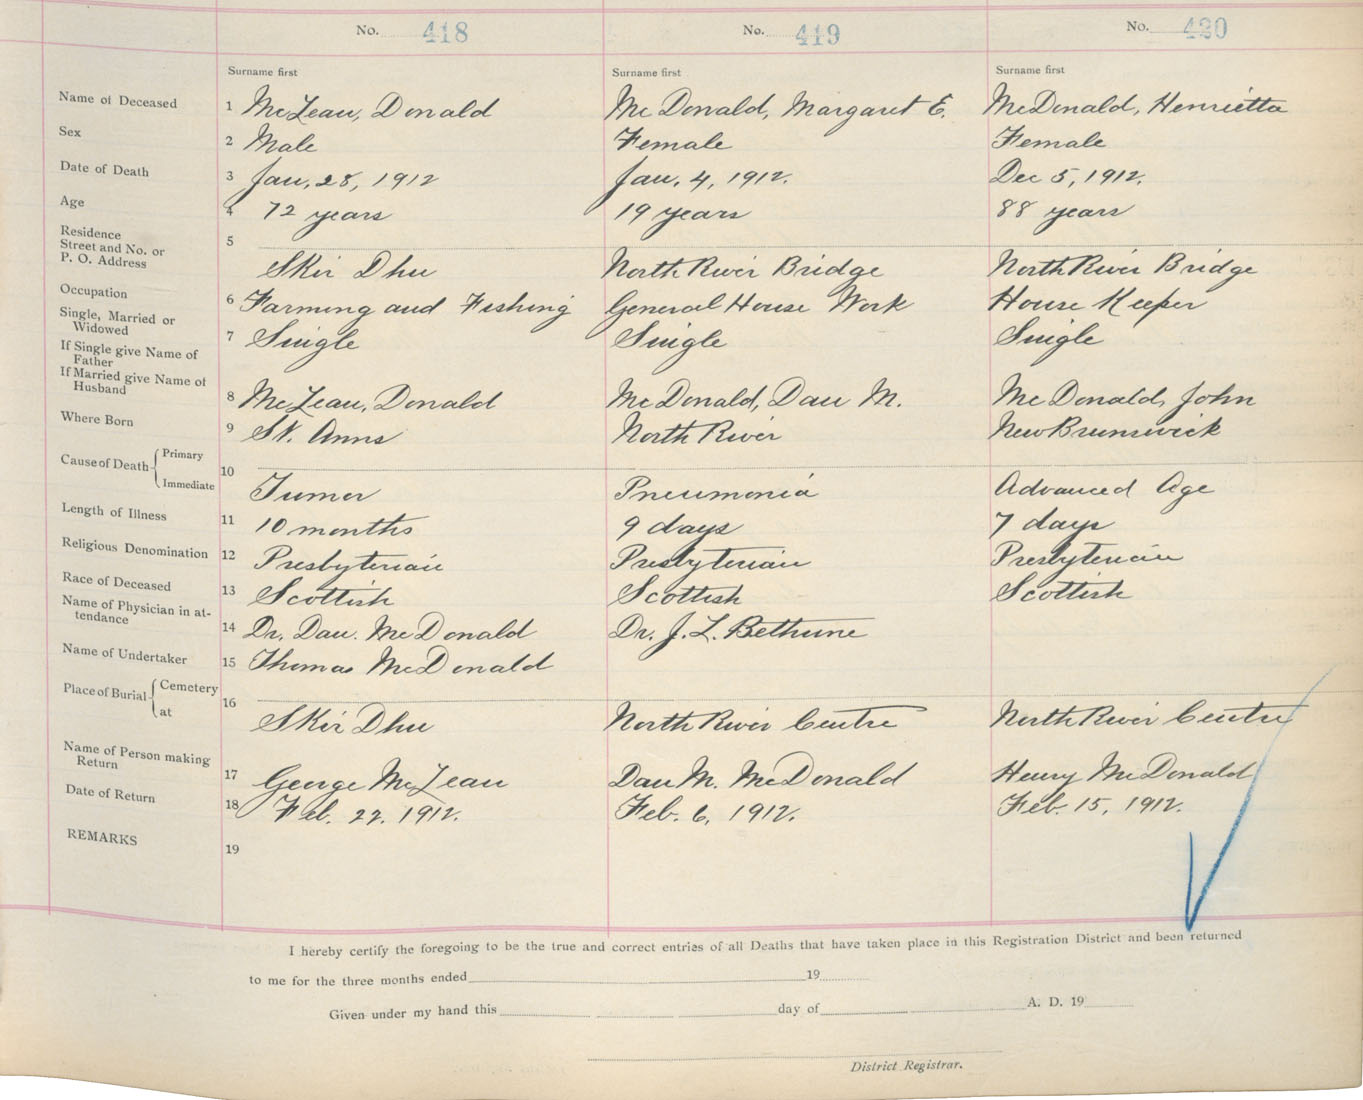 No. 418 No. 419 No. 420
Surname first Surname first Surname first
Name of Deceased 1 McLean, Donald McDonald, Margaret E. McDonald, Henrietta
Sex 2 Male Female Female
Date of Death 3 Jan. 28, 1912 Jan. 4, 1912. Dec 5, 1912.
Age 4 72 years 19 years 88 years
Residence
Street and No. or 5
P. O. Address Skir Dhu North River Bridge North River Bridge
Occupation 6 Farming and Fishing General House Work House Keeper
Single, Married or
Widowed 7 Single Single Single
If Single give Name of
Father
If Married give Name of
Husband 8 McLean, Donald McDonald, Dan M. McDonald, John
Where Born 9 St. Anns North River New Brunswick
Cause of Death { Primary 10
Immediate Tumor Pneumonia Advanced Age
Length of Illness 11 10 months 9 days 7 days
Religious Denomination 12 Presbyterian Presbyterian Presbyterian
Race of Deceased 13 Scottish Scottish Scottish
Name of Physician in at-
tendance 14 Dr. Dan. McDonald Dr. J. L. Bethune
Name of Undertaker 15 Thomas McDonald
Place of Burial { Cemetery 16
at Skir Dhu North River Centre North River Centre
Name of Person making
Return 17 George McLean Dan M. McDonald Henry McDonald
Date of Return 18 Feb. 22. 1912. Feb. 6, 1912. Feb. 15, 1912.
REMARKS 19
I hereby certify the foregoing to be the true and correct entries of all Deaths that have taken place in this Registration District and been returned
to me for the three months ended 19
Given under my hand this day of A. D. 19
District Registrar.